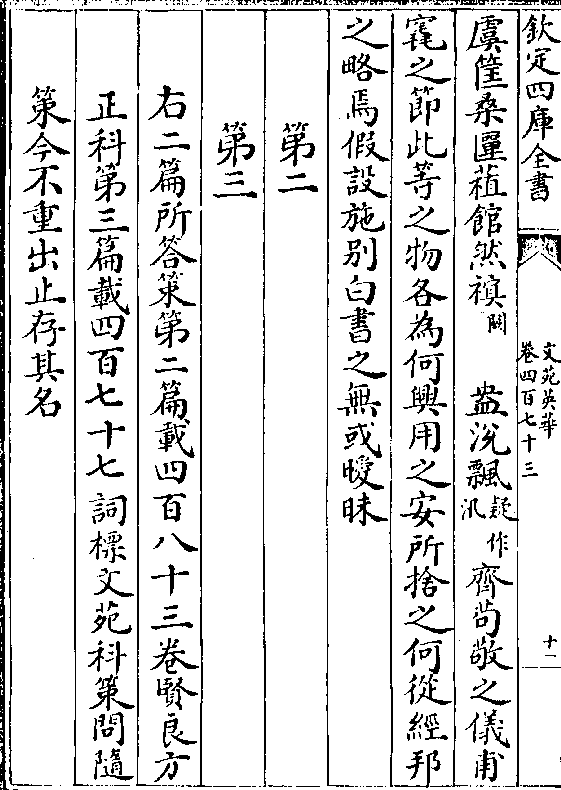 欽定四庫全書
文苑英華
卷四百七十三
十一
虞筐桑匰菹館然䙡闕 盎涗飄疑作汎齊茍敬之儀甫
竁之節此等之物各為何興用之安所捨之何從經邦
之略焉假設施别白書之無或曖昧
第二
第三
右二篇所答策第二篇載四百八十三卷賢良方
正科第三篇載四百七十七詞標文苑科策問隨
策今不重出止存其名